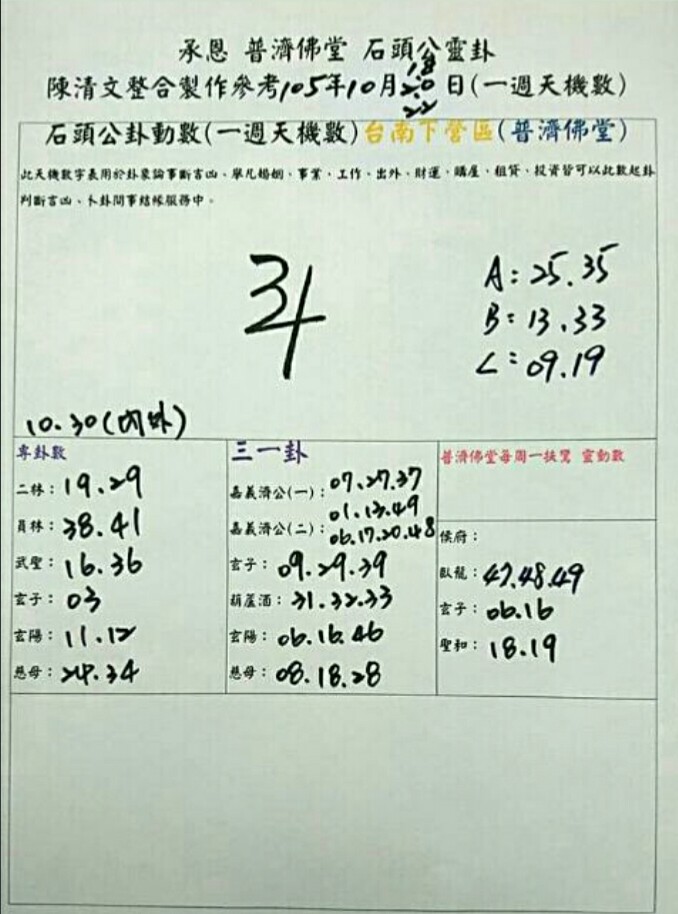 承恩 普濟佛堂 石頭公靈卦
18
陳清文整合製作參考105年10月20日(一週天機數)
22
石頭公卦動數(一週天機數)台南下營區(普濟佛堂)
此天機數字表用於卦象論事斷吉凶、舉凡婚姻、事業、工作、出外、財運、購屋、租貸、投資皆可以此數起卦
判斷吉凶、卜卦問事結緣服務中。
34
A:25.35
B:13.33
C:09.19
10.30(內外)
專卦數
二林:19.29
員林:38.41
武聖:16.36
玄子:03
玄陽:11.12
慈母:24.34
三一卦
嘉義濟公(一):07.27.37
01.13.49
嘉義濟公(二):06.17.20.48
玄子:09.29.39
葫蘆酒:31.32.33
玄陽:06.16.46
慈母:08.18.28
普濟佛堂每周一扶鸞 靈動數
侯府:
臥龍:47.48.49
玄子:06.16
聖和:18.19